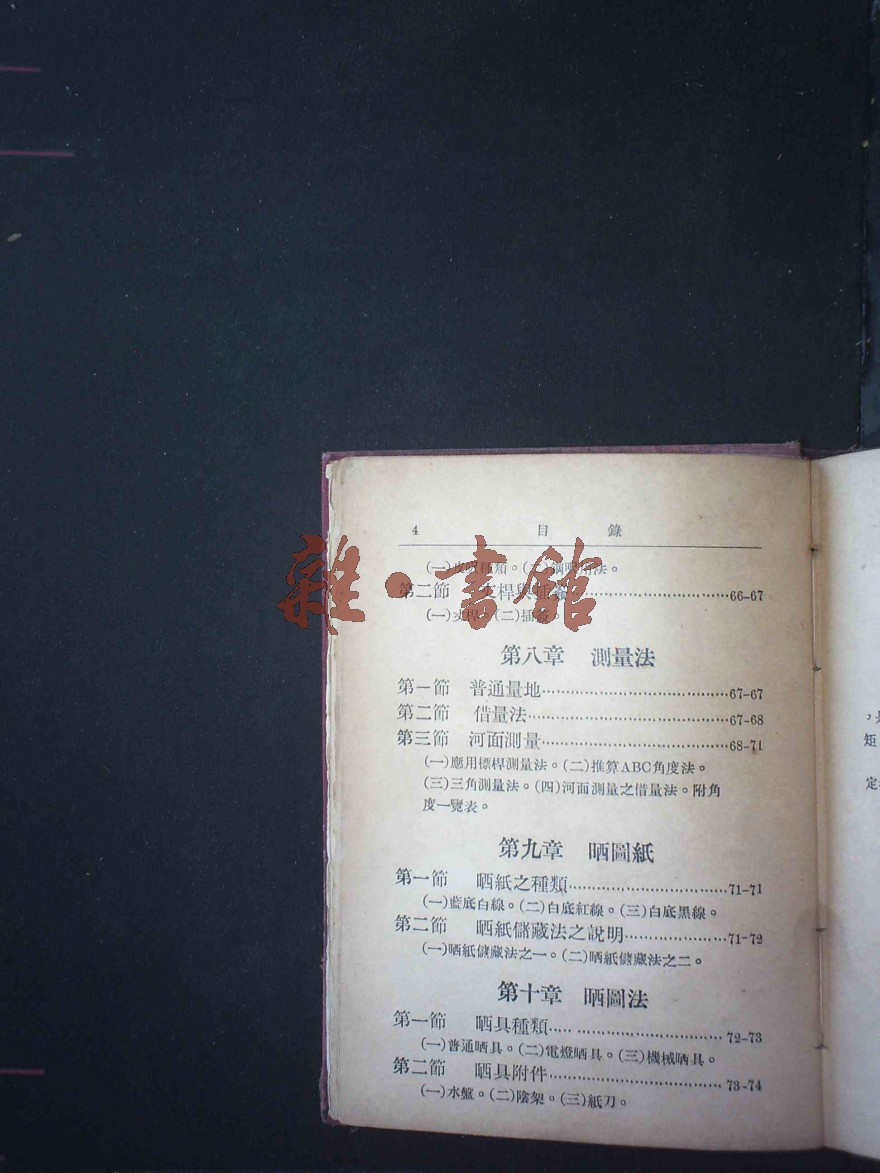 4 目 錄
第二節 66-67
第八章 測量法
第一節 普通量地……67-67
第二節 借量法……67-68
第三節 河面測量……68-71
(一)應用標桿測量法。(二)推算ABC角度法。
(三)三角測量法。(四)河面測量之借量法。附角
度一覽表。
第九章 晒圖紙
第一節 晒紙之種類……71-71
(一)藍底白線。(二)白底紅線。(三)白底黑線。
第二節 晒紙儲藏法之說明……71-72
(一)晒紙儲藏法之一。(二)晒紙儲藏法之二。
第十章 晒圖法
第一節 晒具種類……72-73
(一)普通晒具。(二)電燈晒具。(三)機械晒具。
第二節 晒具附件……73-74
(一)水盤。(二)陰架。(三)紙刀。
雜·書館
矩
定